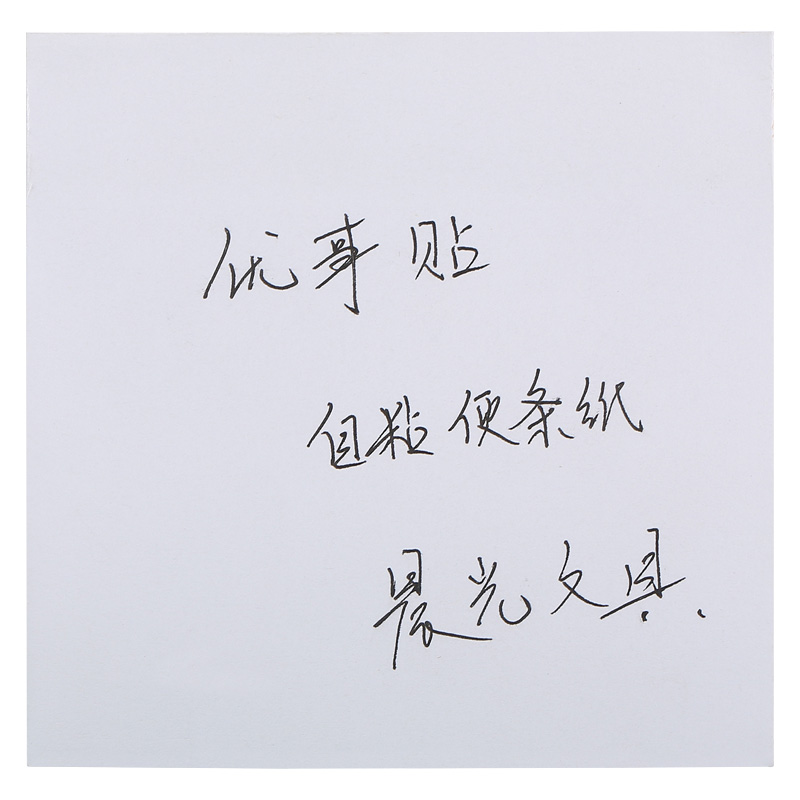 优事贴
自粘便条纸
晨光文具.